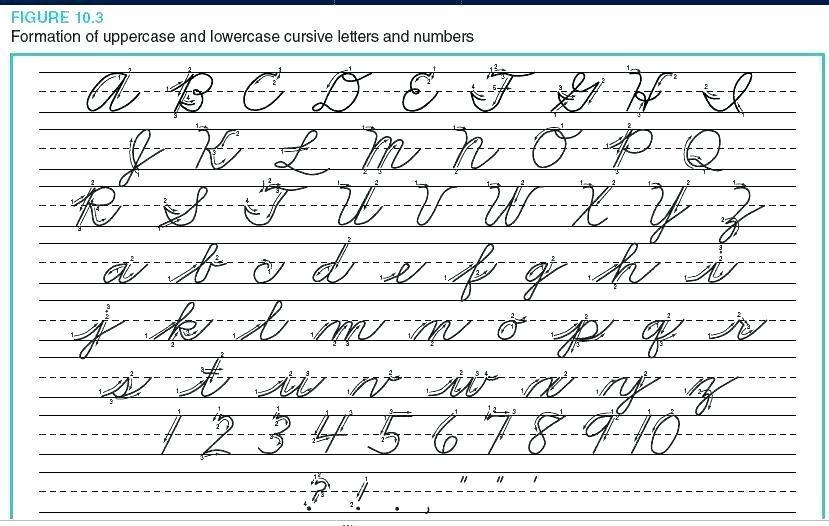 FIGURE 10.3
Formation of uppercase and lowercase cursive letters and numbers
A B C D E F G H I
J K L M N O P Q
R S T U V W X Y Z
a b c d e f g h i
j k l m n o p q r
s t u v w x y z
1 2 3 4 5 6 7 8 9 10
? ! . , " " '